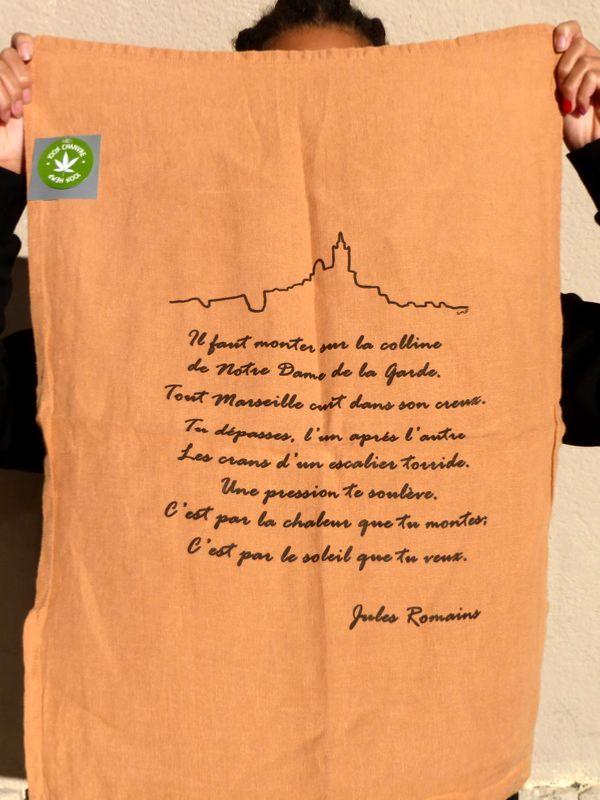 100% CHANVRE
100% HEMP
Il faut monter sur la colline
de Notre Dame de la Garde.
Tout Marseille cuit dans son creux.
Tu dépasses, l'un aprés l'autre
Les crans d'un escalier torride.
Une pression te soulève.
C'est par la chaleur que tu montes;
C'est par le soleil que tu veux.
Jules Romains